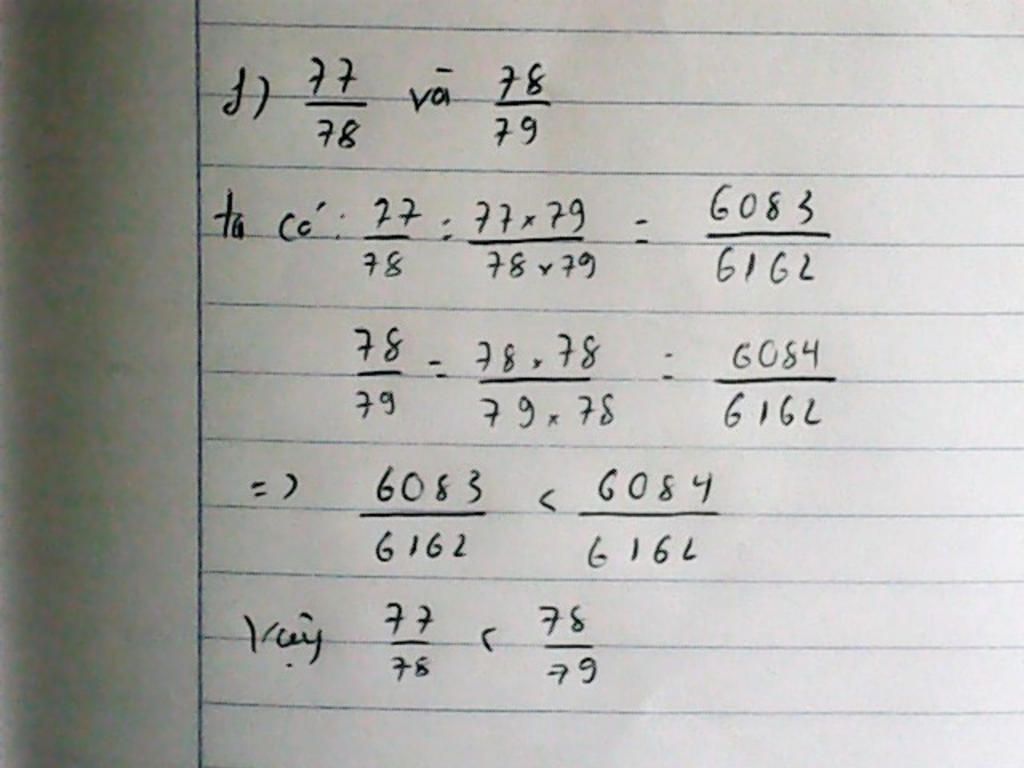 f) 77/78 và 78/79
ta có: 77/78 = 77×79/78×79 = 6083/6162
78/79 = 78×78/79×78 = 6084/6162
=> 6083/6162 < 6084/6162
Vậy 77/78 < 78/79